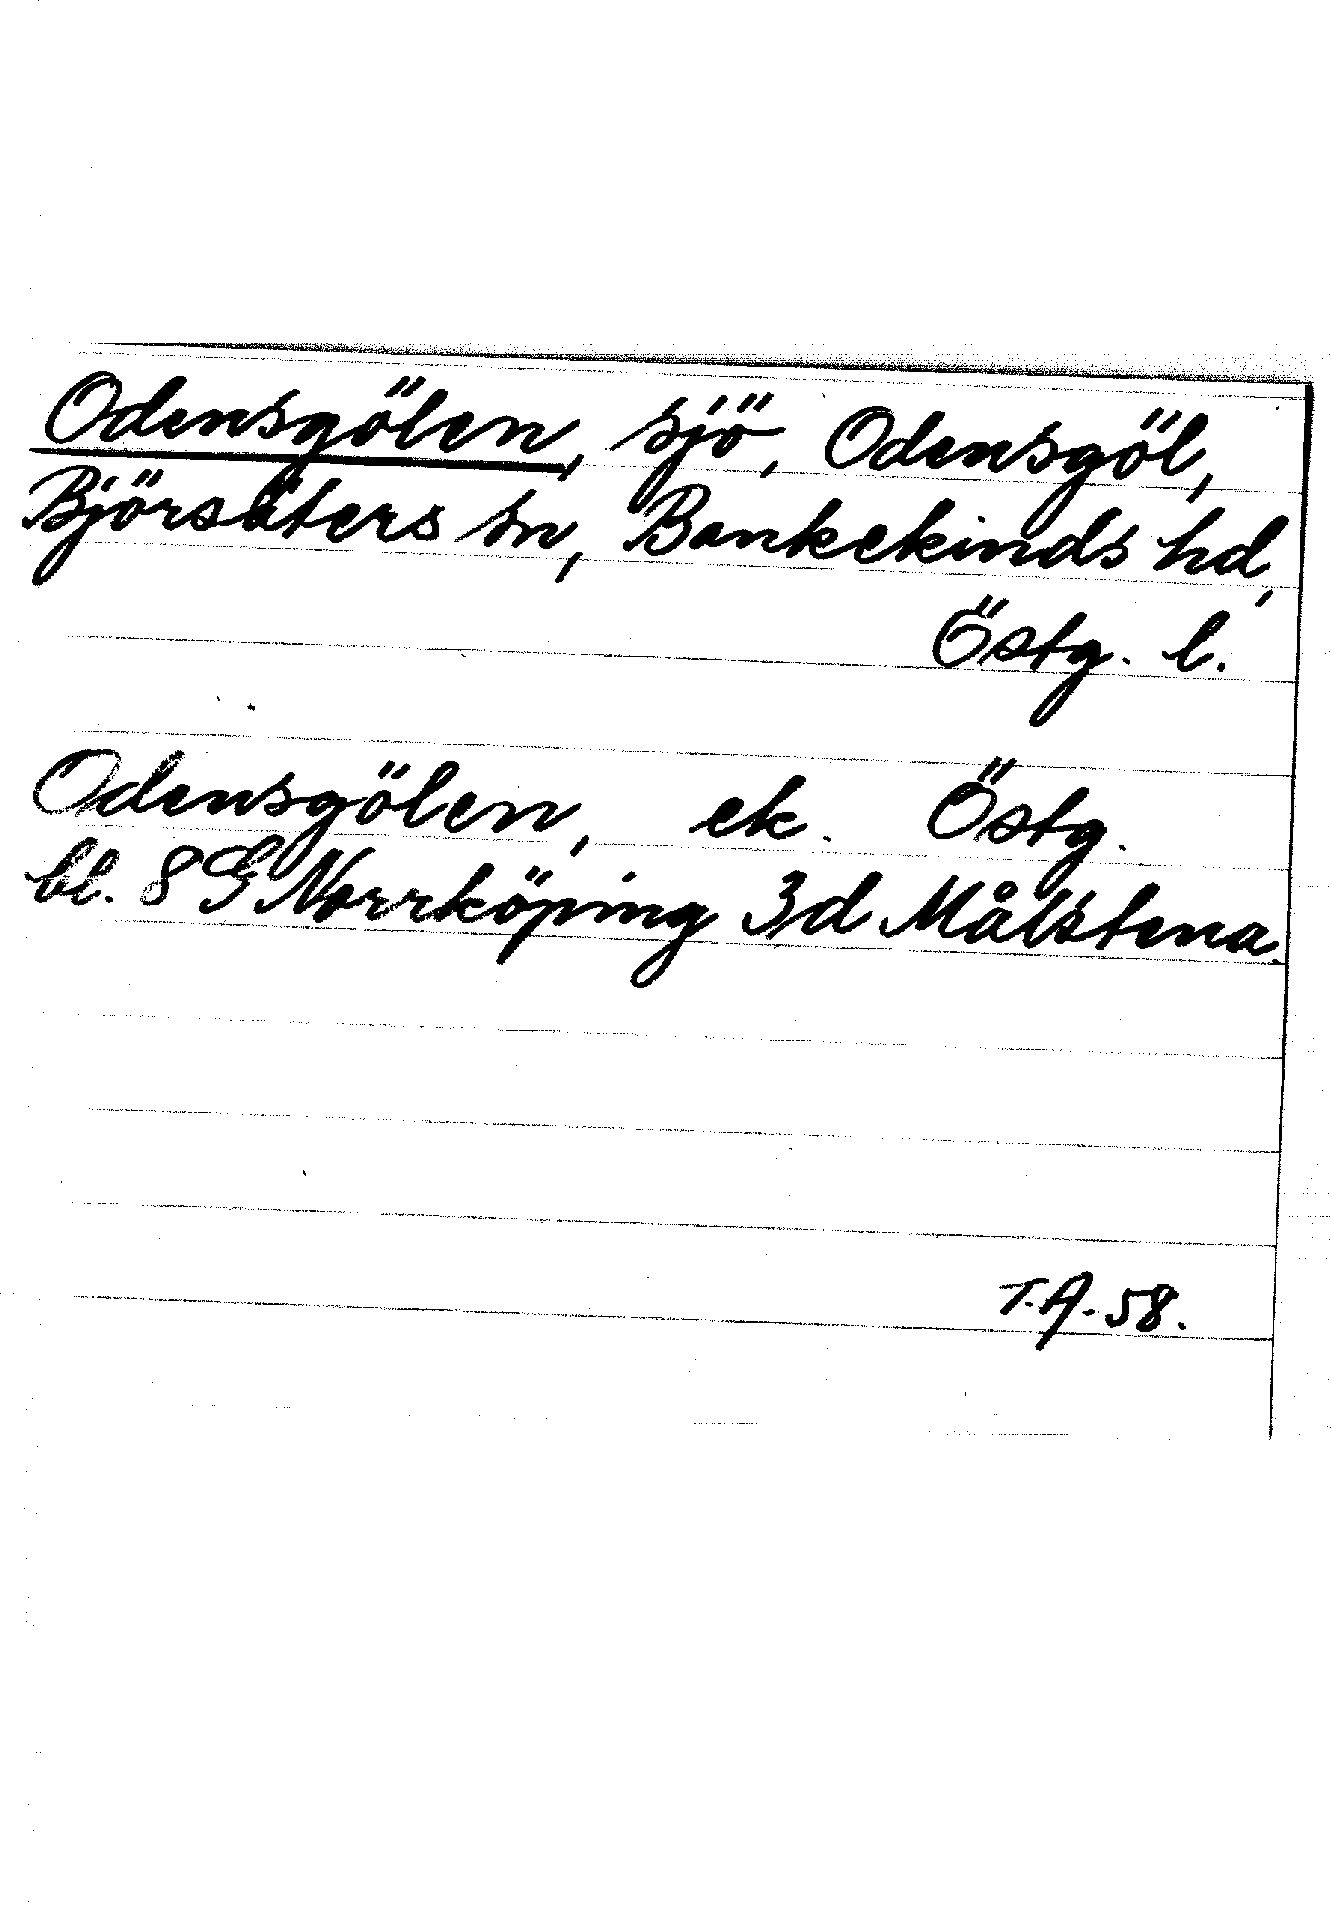 Odensgölen, sjö, Odensgöl,
Björsäters sn, Bankekinds hd,
Östg. l.
Odensgölen, ek. Östg.
bl. 8 G Norrköping 3d Målstena.
T.A. 58.